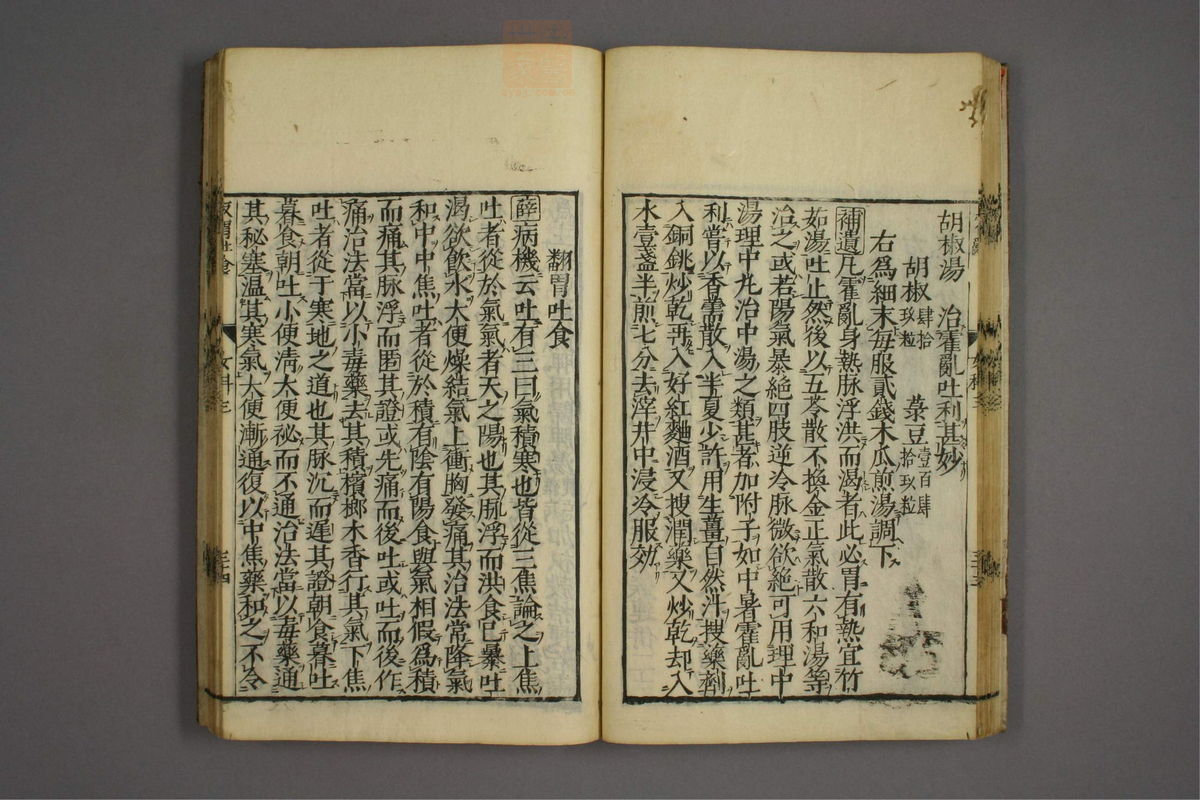 胡椒湯　治霍亂吐利甚妙
胡椒肆拾玖粒　菉豆壹百肆拾玖粒
右爲細末每服貳錢木瓜煎湯調下
補遺凡霍亂身熱脉浮洪而渴者此必胃有熱宜竹
茹湯吐止然後以五苓散不換金正氣散六和湯等
治之或若陽氣暴絶四肢逆冷脉微欲絶可用理中
湯理中丸治中湯之類甚者加附子如中暑霍亂吐
利嘗以香薷散入半夏少許用生薑自然汁搜藥劑
入銅銚炒乾再入好紅麯酒又搜潤藥又炒乾却入
水壹盞半煎七分去滓井中浸冷服効
翻胃吐食
薛病機云吐有三曰氣積寒也皆從三焦論之上焦
吐者從於氣氣者天之陽也其脈浮而洪食已暴吐
渴欲飲水大便燥結氣上衝胸發痛其治法當降氣
和中中焦吐者從於積有陰有陽食與氣相假爲積
而痛其脉浮而匿其證或先痛而後吐或吐而後作
痛治法當以小毒藥去其積檳榔木香行其氣下焦
吐者從于寒地之道也其脉沉而遲其證朝食暮吐
暮食朝吐小便淸大便祕而不通治法當以毒藥通
其秘塞溫其寒氣大便漸通復以中焦藥和之不令